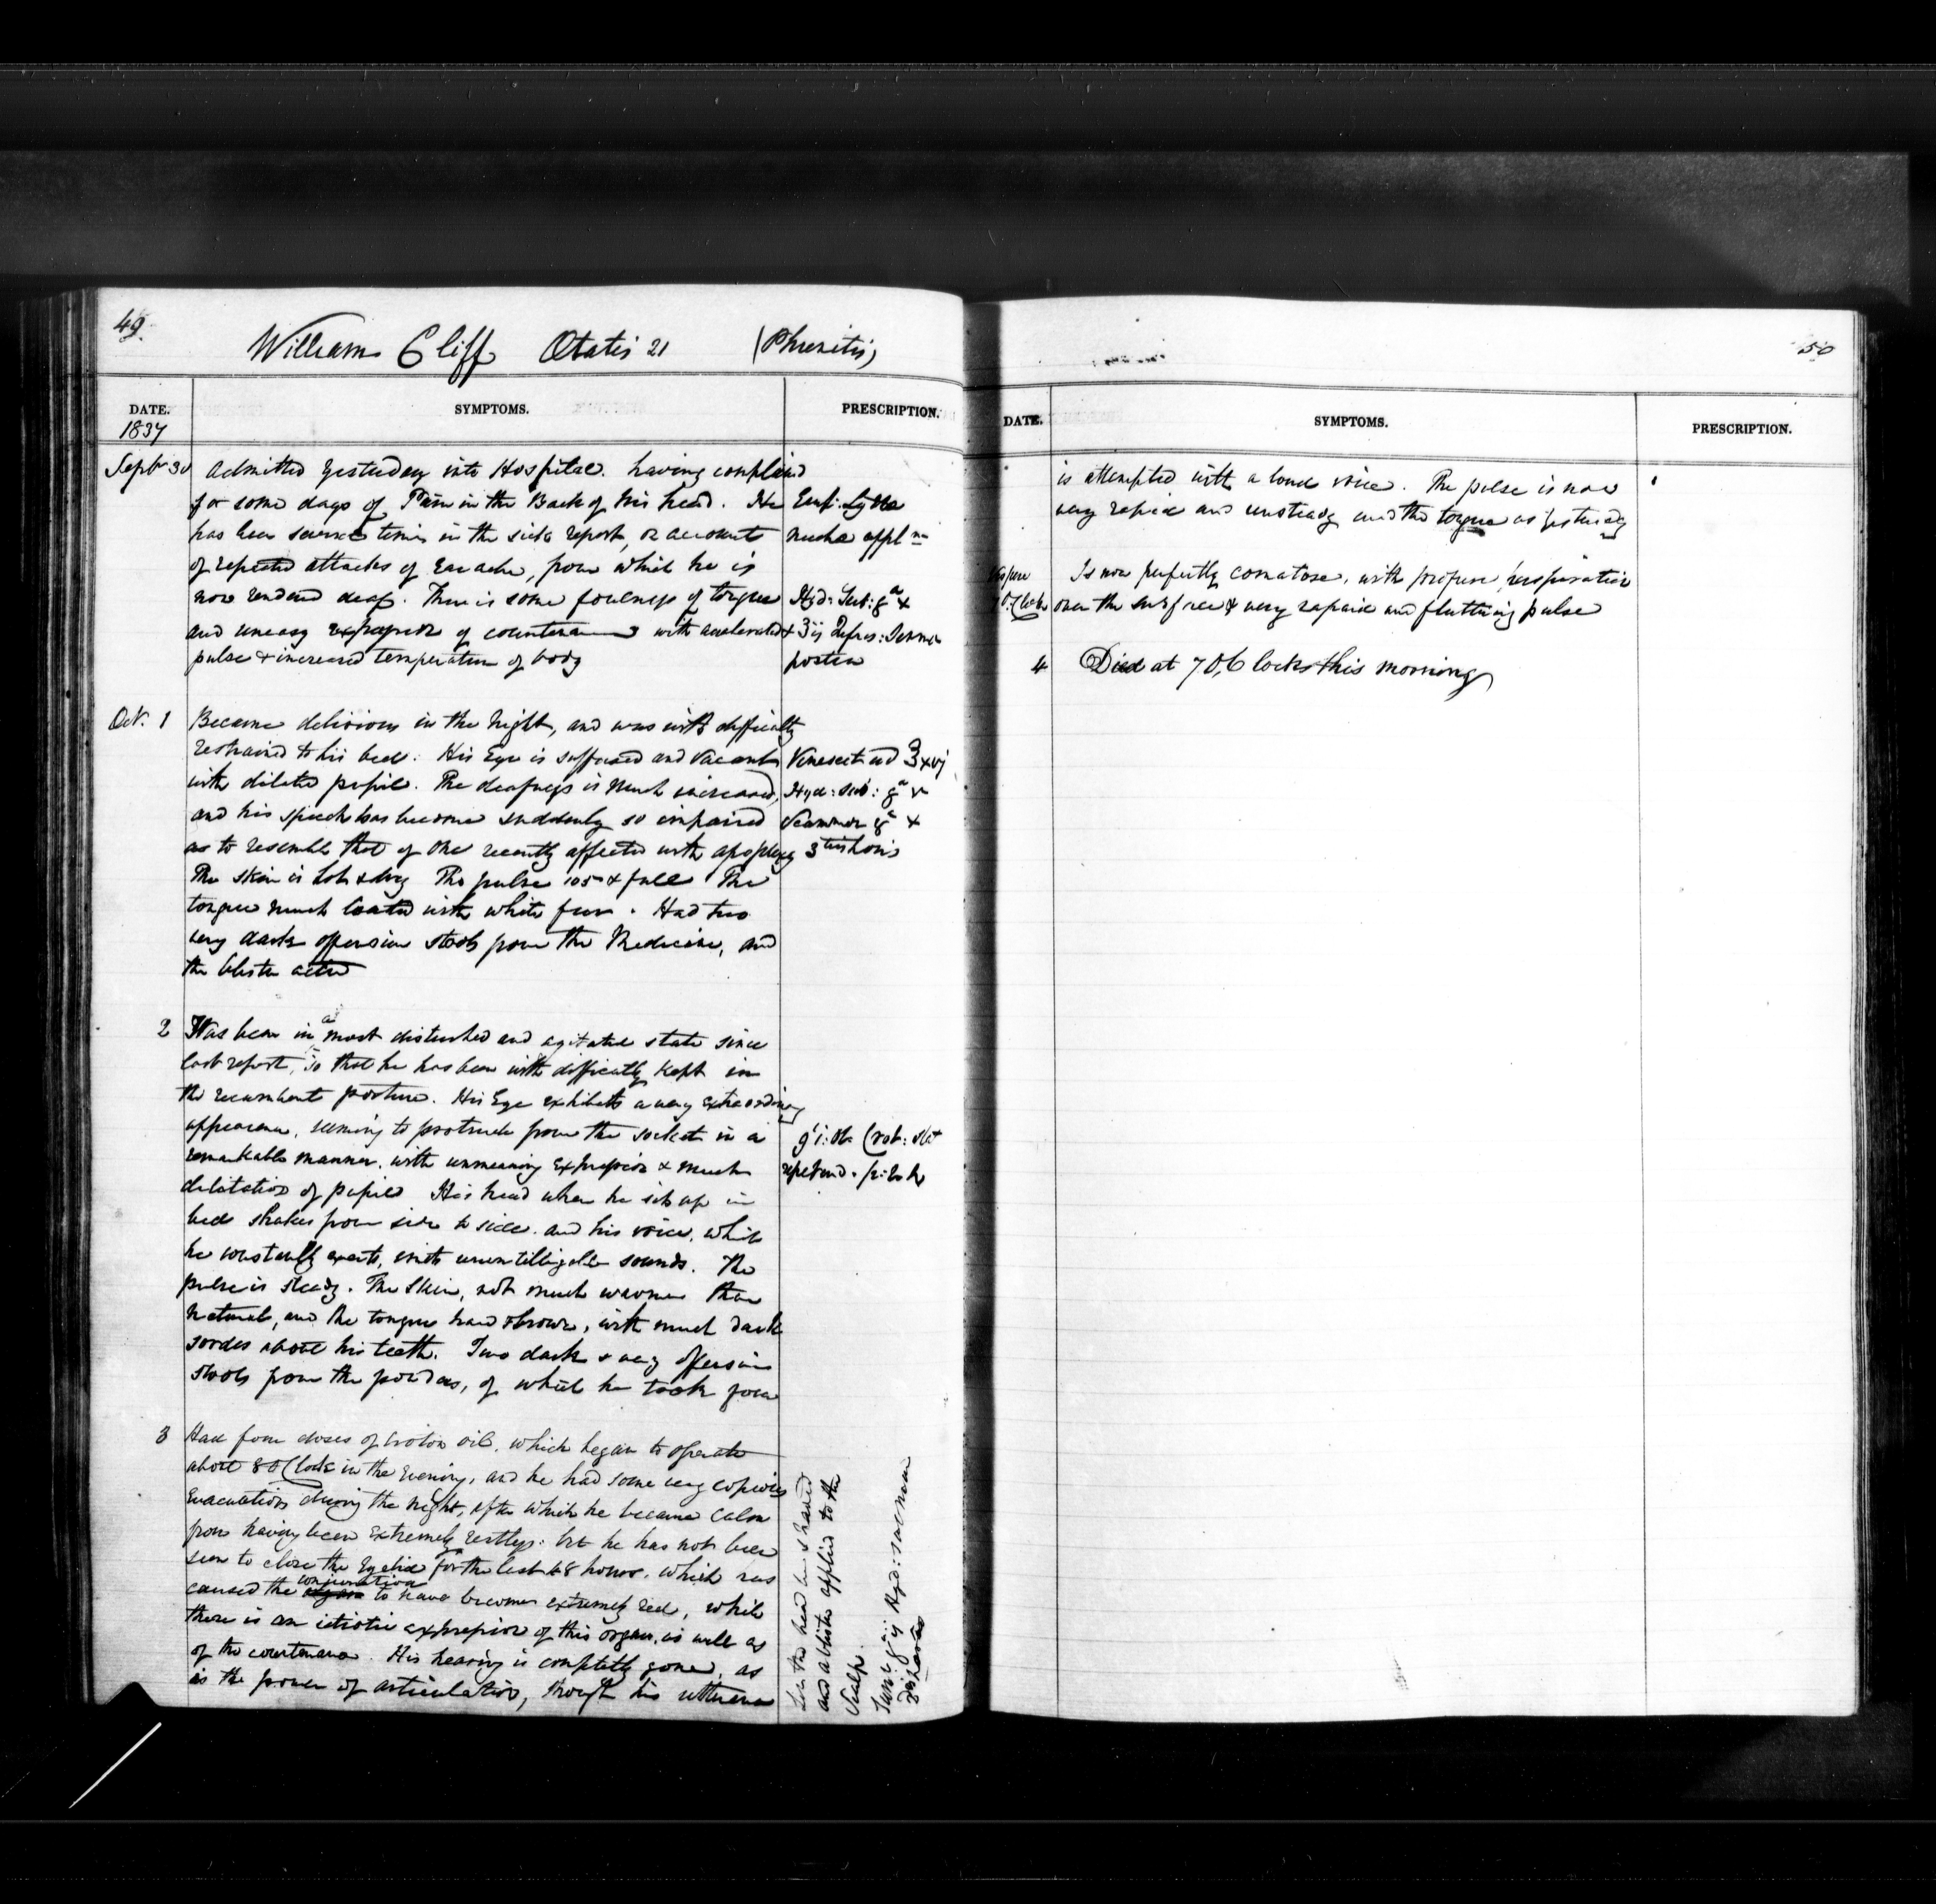 49.
William Cliff Ætatis 21 (Phrenitis)
DATE. SYMPTOMS. PRESCRIPTION.
1837
Septr 30 Admitted yesterday into Hospital. having complaind
for some days of Pain in the Back of his head. He
has been several times in the sick report, on account
of repeated attacks of Earache, from which he is
now rendered deaf. There is some foulness of tongue
and uneasy expression of countenance with accelerated
pulse & increased temperature of body
Emp: Lyttæ
nucha appl
Hyd: Sub: gr x
& ʒij Infus: Sennæ
postea
Oct. 1 Became delirious in the night, and was with difficulty
restrained to his bed. His Eye is suffused and vacant
with dilated pupil. The deafness is much increased,
and his speech has become suddenly so impaired
as to resemble that of one recently affected with apoplexy
The skin is hot & dry The pulse 105 & full The
tongue much loaded with white fur. Had two
very dark offensive stools from the Medicine, and
the blister acted
Venesect ad ℥xvj
Hyd: sub: gr v
Scammon gr x
3 tiis horis
2 Has been in a most disturbed and agitated state since
last report, so that he has been with difficulty kept in
the recumbent posture. His Eye exhibits a very extraordinary
appearance, seeming to protrude from the socket in a
remarkable manner, with unmeaning expression & much
dilatation of pupils His head when he sits up in
bed shakes from side to side. and his voice, which
he constantly exerts, emits unintelligible sounds. The
pulse is steady. The skin, not much warmer than
natural, and the tongue hard & brown, with much dark
sordes about his teeth. Two dark & very offensive
stools from the powders, of which he took four
Crot: stat
repetend.
3 Had four doses of Croton oil, which began to operate
about 8 OClock in the evening, and he had some very copious
evacuations during the night, after which he became calm
from having been extremely restless: but he has not been
seen to close the Eyelid for the last 48 hours, which has
caused the conjunctiva to have become extremely red, while
there is an idiotic expression of this organ, as well as
of the countenance. His hearing is completely gone, as
is the power of articulation, though his utterance
Let the head be shaved
and a blister applied to the
Scalp.
50
DATE. SYMPTOMS. PRESCRIPTION.
is attempted with a loud voice. The pulse is now
very rapid and unsteady and the tongue as yesterday
Vespere Is now perfectly comatose, with profuse perspiration
OClock over the surface & very rapid and fluttering pulse
4 Died at 7 O,Clock this morning